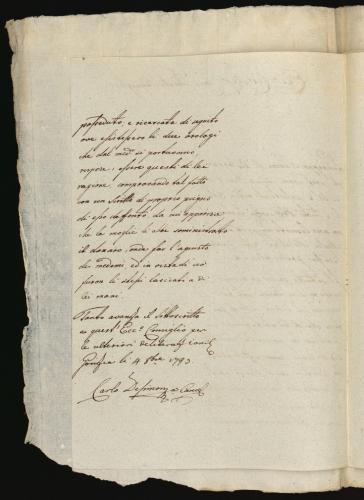 posseduto, e ricercata di
ove esistessero li due orologi
che dal med.o si portavano
rispose, essere questi di lei
ragione comprovando tal fatto
con un scritto di proprio pugno
di esso defonto, da cui apparisce
che la moglie li
il denaro, onde far l'acquisto
de medemi, ed in vista di ciò
furon li stessi lasciati a di
lei mani.
Tanto avanza il sottoscritto
a quest' Ecc.o Consiglio per
le ulteriori deliberat.i
li 4 8bre 1793
Carlo Desimoni